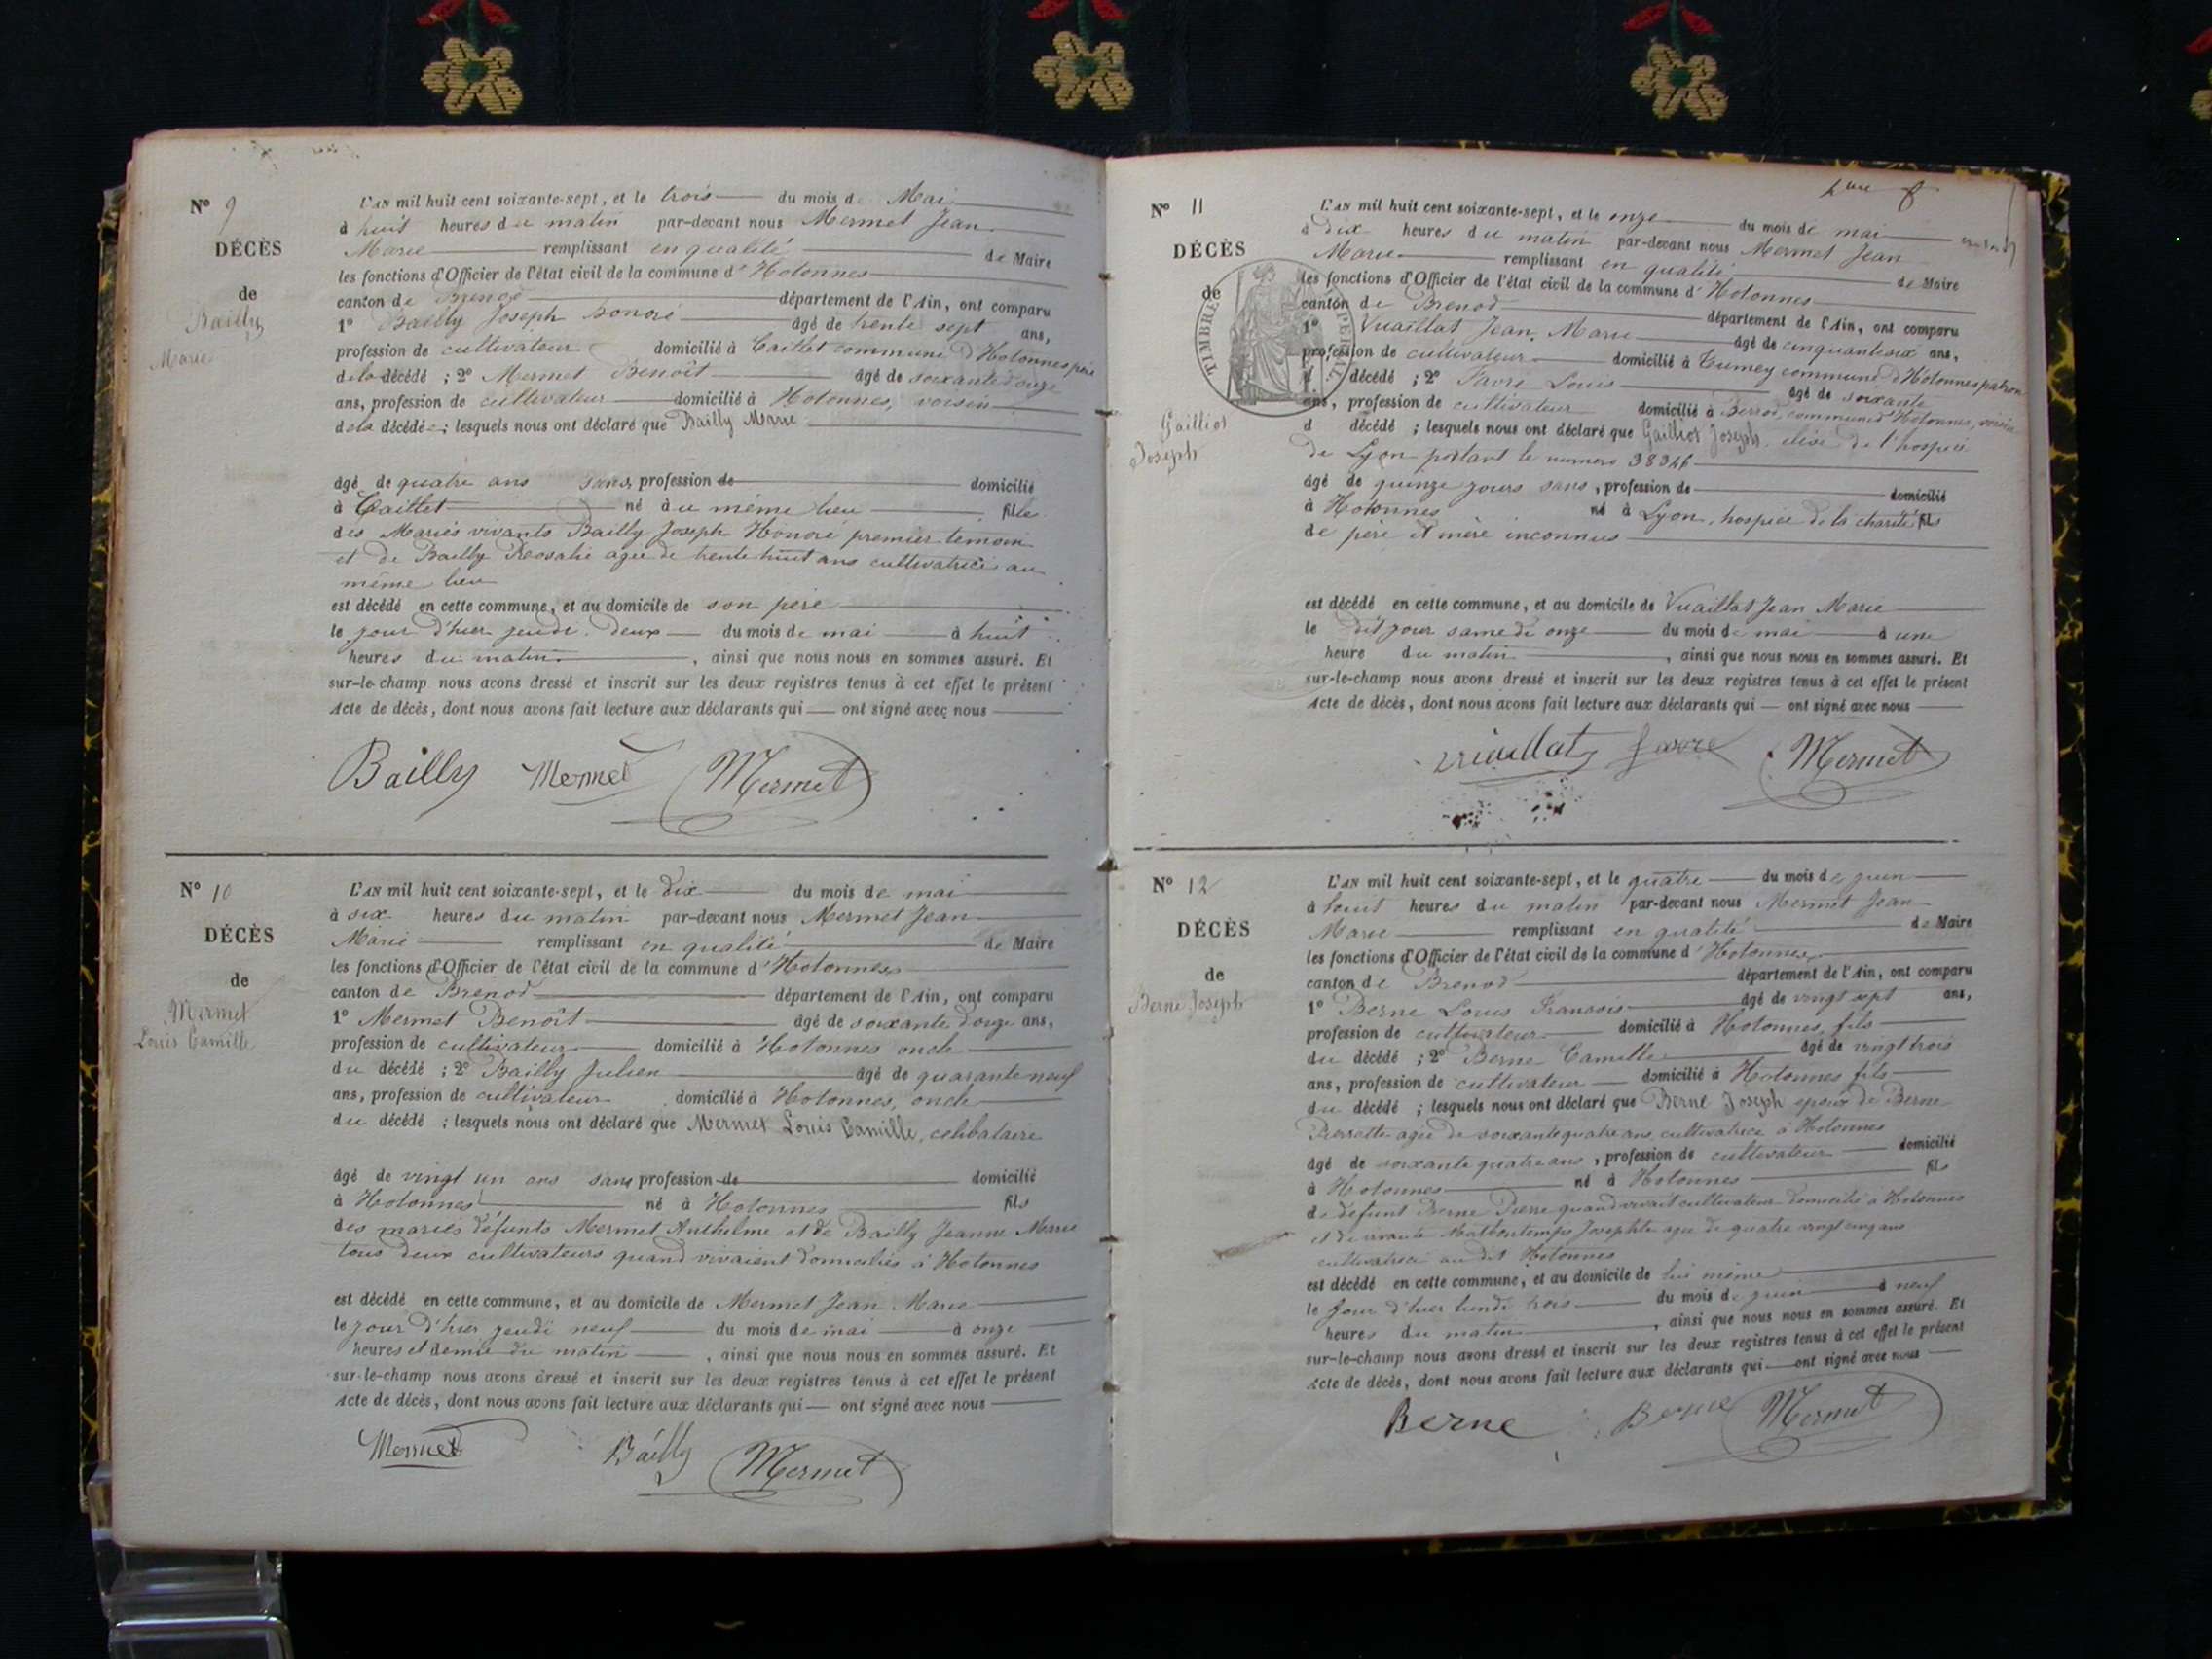 N° 9
DÉCÈS
de
Bailly
Marie
L'AN mil huit cent soixante-sept, et le trois du mois de Mai
à huit heures du matin par-devant nous Mermet Jean
Marie remplissant en qualité de Maire
les fonctions d'Officier de l'état civil de la commune d'Hotonnes
canton de Brenod département de l'Ain, ont comparu
1° Bailly Joseph honoré âgé de trente sept ans,
profession de cultivateur domicilié à Caillet commune d'Hotonnes père
de la décédé ; 2° Mermet Benoît âgé de soixante douze
ans, profession de cultivateur domicilié à Hotonnes, voisin
de la décédée ; lesquels nous ont déclaré que Bailly Marie
âgé de quatre ans sans profession de domicilié
à Caillet né au même lieu fille
des Mariés vivants Bailly Joseph Honoré premier temoin
et de Bailly Reosalie agée de trente huit ans cultivatrice au
même lieu
est décédé en cette commune, et au domicile de son père
le jour d'hier jeudi deux du mois de mai à huit
heures du matin, ainsi que nous nous en sommes assuré. Et
sur-le-champ nous avons dressé et inscrit sur les deux registres tenus à cet effet le présent
Acte de décès, dont nous avons fait lecture aux déclarants qui ont signé avec nous
Bailly Mermet Mermet
N° 10
DÉCÈS
de
Mermet
Louis Camille
L'AN mil huit cent soixante-sept, et le dix du mois de mai
à six heures du matin par-devant nous Mermet Jean
Marie remplissant en qualité de Maire
les fonctions d'Officier de l'état civil de la commune d'Hotonnes
canton de Brenod département de l'Ain, ont comparu
1° Mermet Benoît âgé de soixante douze ans,
profession de cultivateur domicilié à Hotonnes oncle
du décédé ; 2° Bailly Julien âgé de quarante neuf
ans, profession de cultivateur domicilié à Hotonnes, oncle
du décédé ; lesquels nous ont déclaré que Mermet Louis Camille, celibataire
âgé de vingt un ans sans profession de domicilié
à Hotonnes né à Hotonnes fils
des mariés défunts Mermet Anthelme et de Bailly Jeanne Marie
tous deux cultivateurs quand vivaient domiciliés à Hotonnes
est décédé en cette commune, et au domicile de Mermet Jean Marie
le jour d'hier jeudi neuf du mois de mai à onze
heures et demie du matin, ainsi que nous nous en sommes assuré. Et
sur-le-champ nous avons dressé et inscrit sur les deux registres tenus à cet effet le présent
Acte de décès, dont nous avons fait lecture aux déclarants qui ont signé avec nous
Mermet Bailly Mermet
N° 11
DÉCÈS
de
TIMBRE IMPERIAL
Gailliot
Joseph
L'AN mil huit cent soixante-sept, et le onze du mois de mai
à dix heures du matin par-devant nous Mermet Jean
Marie remplissant en qualité de Maire
les fonctions d'Officier de l'état civil de la commune d'Hotonnes
canton de Brenod département de l'Ain, ont comparu
1° Vuaillat Jean Marie âgé de cinquante six ans,
profession de cultivateur domicilié à commune d'Hotonnes patron
d décédé ; 2° Favre Louis âgé de soixante
ans, profession de cultivateur domicilié à commune d'Hotonnes, voisin
d décédé ; lesquels nous ont déclaré que Gailliot Joseph élève de l'hospice
de Lyon portant le numero
âgé de quinze jours sans, profession de domicilié
à Hotonnes né à Lyon, hospice de la charité fils
de père et mère inconnus
est décédé en cette commune, et au domicile de Vuaillat Jean Marie
le dit jour samedi onze du mois de mai à une
heure du matin, ainsi que nous nous en sommes assuré. Et
sur-le-champ nous avons dressé et inscrit sur les deux registres tenus à cet effet le présent
Acte de décès, dont nous avons fait lecture aux déclarants qui ont signé avec nous
vuaillat favre Mermet
N° 12
DÉCÈS
de
Berne Joseph
L'AN mil huit cent soixante-sept, et le quatre du mois de juin
à huit heures du matin par-devant nous Mermet Jean
Marie remplissant en qualité de Maire
les fonctions d'Officier de l'état civil de la commune d'Hotonnes
canton de Brenod département de l'Ain, ont comparu
1° Berne Louis Francois âgé de vingt sept ans,
profession de cultivateur domicilié à Hotonnes fils
du décédé ; 2° Berne Camille âgé de vingt trois
ans, profession de cultivateur domicilié à Hotonnes fils
du décédé ; lesquels nous ont déclaré que Berne Joseph epoux de Berne
Pierrette agée de soixante quatre ans cultivatrice à Hotonnes
âgé de soixante quatre ans, profession de cultivateur domicilié
à Hotonnes né à Hotonnes fils
de défunt Berne Pierre quand vivait cultivateur domicilié à Hotonnes
et de vivante Josephte agée de quatre vingt cinq ans
cultivatrice au dit Hotonnes
est décédé en cette commune, et au domicile de lui même
le jour d'hier lundi trois du mois de juin à neuf
heures du matin, ainsi que nous nous en sommes assuré. Et
sur-le-champ nous avons dressé et inscrit sur les deux registres tenus à cet effet le présent
Acte de décès, dont nous avons fait lecture aux déclarants qui ont signé avec nous
Berne Berne Mermet